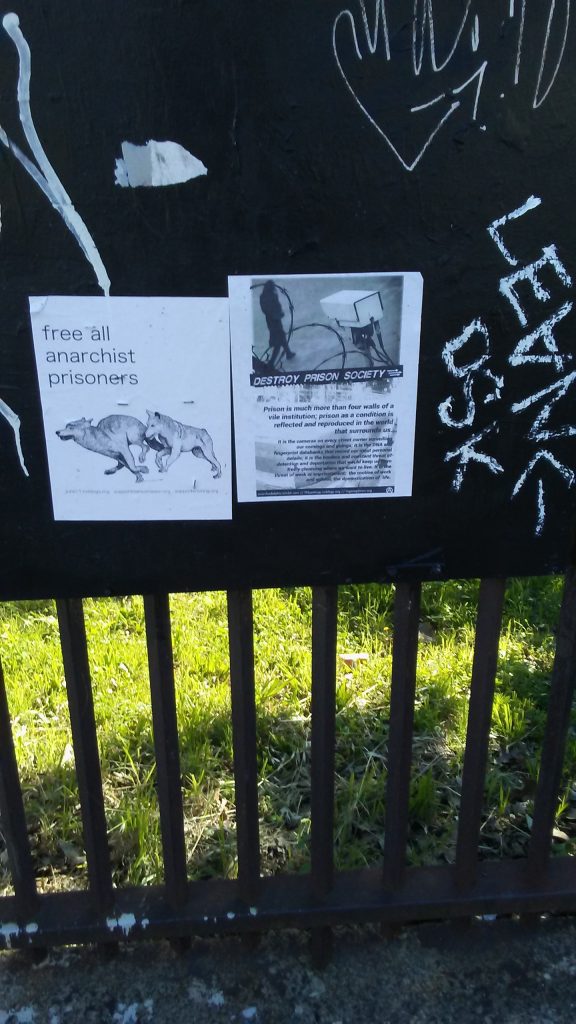 free all
anarchist
prisoners
DESTROY PRISON SOCIETY
Prison is much more than four walls of a
vile institution; prison as a condition is
reflected and reproduced in the world
that surrounds us.
It is the cameras on every street corner surveilling
our comings and goings; it is the DNA and
fingerprint databanks that record our most personal
details; it is the borders and constant threat of
detention and deportation that would keep us from
freely choosing where we want to live. It is the
threat of work or
and school, the domestication of life.
LEAVK
OSK